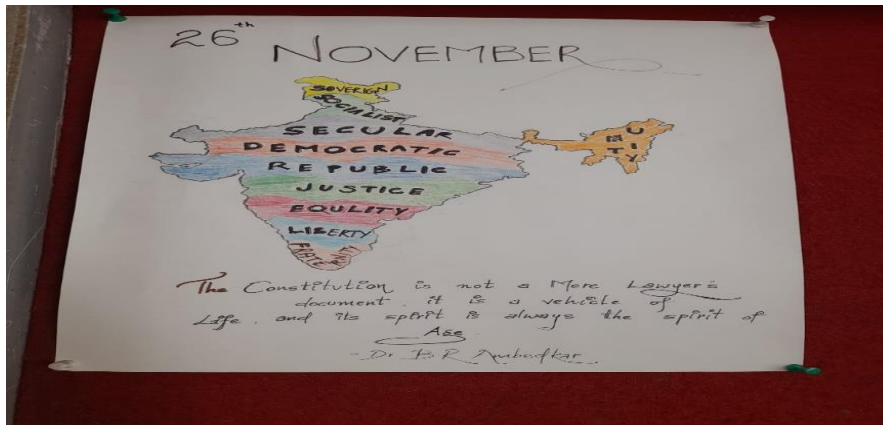 26th
NOVEMBER
SOVERIGN
SOCIALIST
SECULAR
DEMOCRATIC
REPUBLIC
JUSTICE
EQULITY
LIBERTY
FRATERNITY
UNITY
The Constitution is not a Mere Lawyer's
document. it is a vehicle of
Life. and its spirit is always the spirit of
Age
- Dr B R Ambedkar